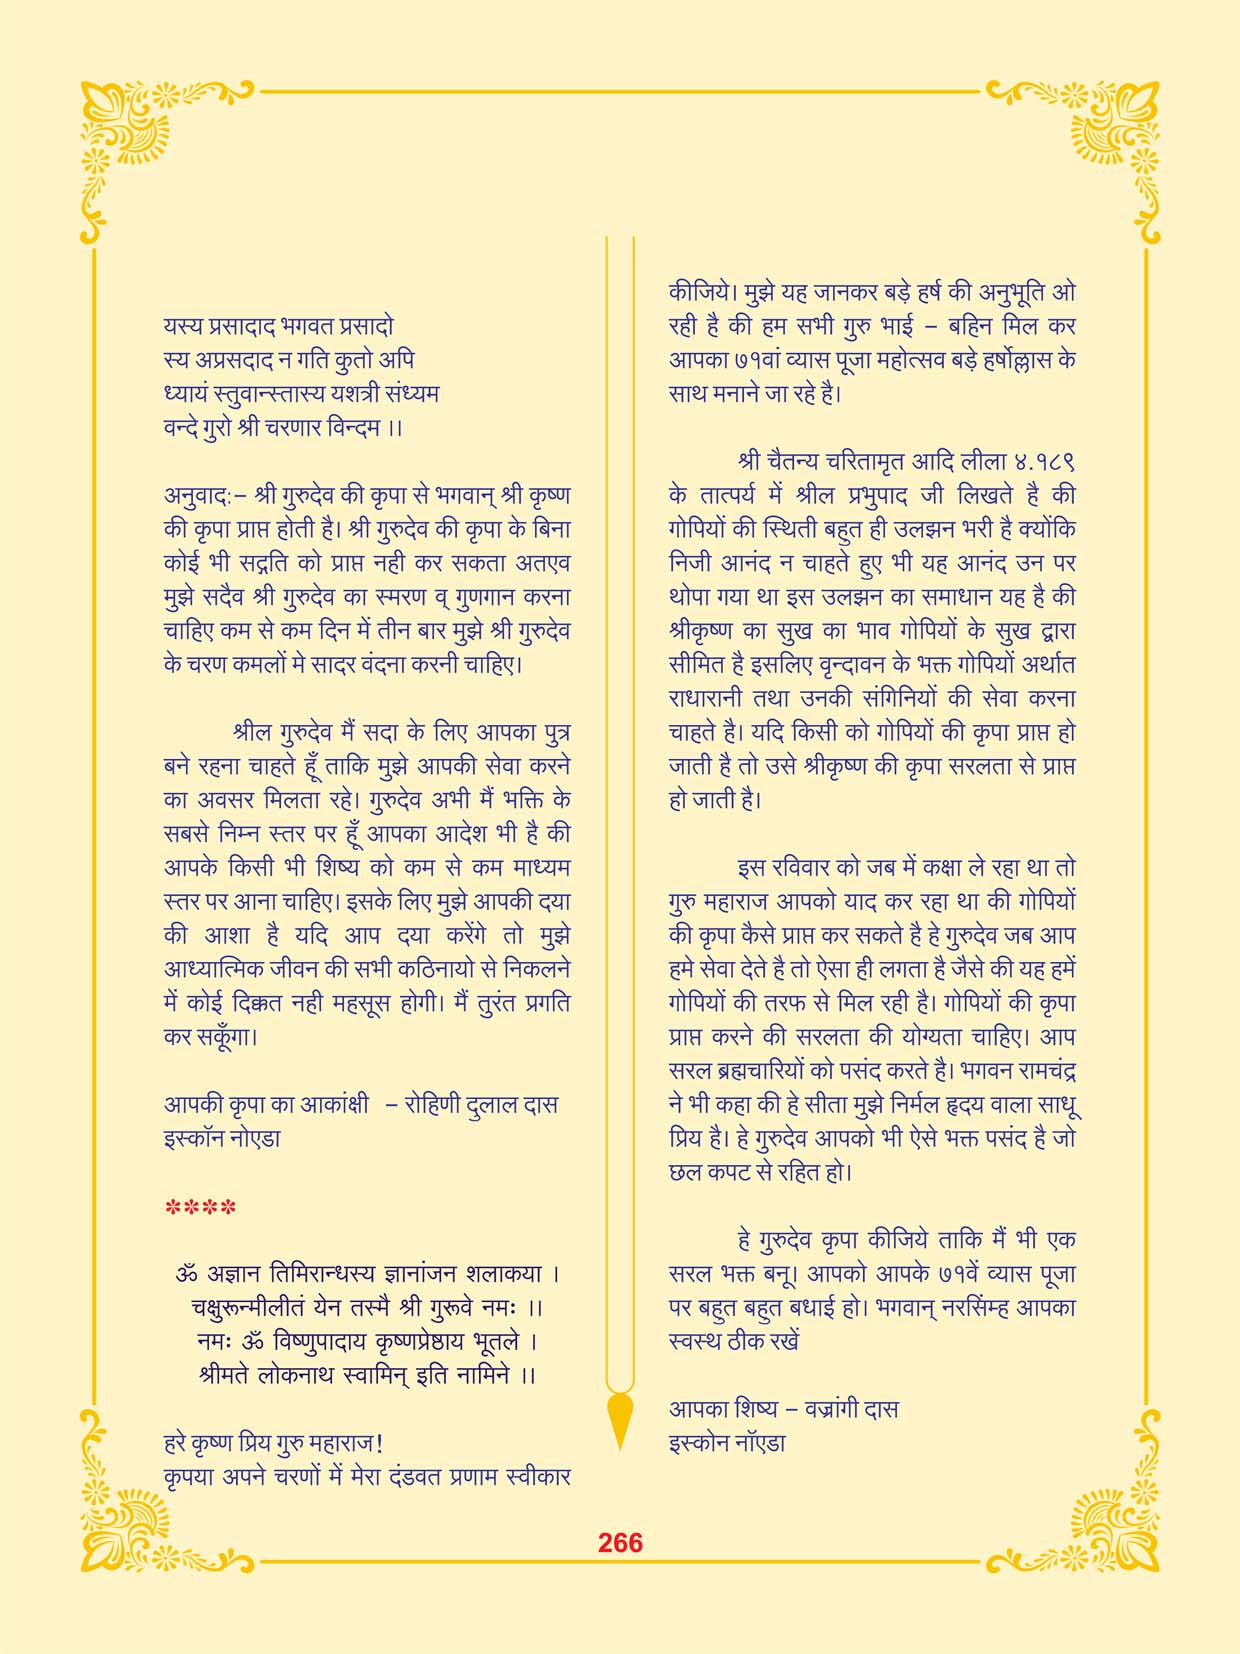 यस्य प्रसादाद भगवत प्रसादो
स्य अप्रसदाद न गति कुतो अपि
ध्यायं स्तुवान्स्तास्य यशत्री संध्यम
वन्दे गुरो श्री चरणार विन्दम ।।
अनुवादः– श्री गुरुदेव की कृपा से भगवान् श्री कृष्ण
की कृपा प्राप्त होती है। श्री गुरुदेव की कृपा के बिना
कोई भी सद्गति को प्राप्त नही कर सकता अतएव
मुझे सदैव श्री गुरुदेव का स्मरण व् गुणगान करना
चाहिए कम से कम दिन में तीन बार मुझे श्री गुरुदेव
के चरण कमलों मे सादर वंदना करनी चाहिए।
श्रील गुरुदेव मैं सदा के लिए आपका पुत्र
बने रहना चाहते हूँ ताकि मुझे आपकी सेवा करने
का अवसर मिलता रहे। गुरुदेव अभी मैं भक्ति के
सबसे निम्न स्तर पर हूँ आपका आदेश भी है की
आपके किसी भी शिष्य को कम से कम माध्यम
स्तर पर आना चाहिए। इसके लिए मुझे आपकी दया
की आशा है यदि आप दया करेंगे तो मुझे
आध्यात्मिक जीवन की सभी कठिनायो से निकलने
में कोई दिक्कत नही महसूस होगी। मैं तुरंत प्रगति
कर सकूँगा।
आपकी कृपा का आकांक्षी – रोहिणी दुलाल दास
इस्कॉन नोएडा
****
ॐ अज्ञान तिमिरान्धस्य ज्ञानांजन शलाकया ।
चक्षुरून्मीलीतं येन तस्मै श्री गुरूवे नमः ।।
नमः ॐ विष्णुपादाय कृष्णप्रेष्ठाय भूतले ।
श्रीमते लोकनाथ स्वामिन् इति नामिने ।।
हरे कृष्ण प्रिय गुरु महाराज!
कृपया अपने चरणों में मेरा दंडवत प्रणाम स्वीकार
कीजिये। मुझे यह जानकर बड़े हर्ष की अनुभूति ओ
रही है की हम सभी गुरु भाई – बहिन मिल कर
आपका ७१वां व्यास पूजा महोत्सव बड़े हर्षोल्लास के
साथ मनाने जा रहे है।
श्री चैतन्य चरितामृत आदि लीला ४.१८९
के तात्पर्य में श्रील प्रभुपाद जी लिखते है की
गोपियों की स्थिती बहुत ही उलझन भरी है क्योंकि
निजी आनंद न चाहते हुए भी यह आनंद उन पर
थोपा गया था इस उलझन का समाधान यह है की
श्रीकृष्ण का सुख का भाव गोपियों के सुख द्वारा
सीमित है इसलिए वृन्दावन के भक्त गोपियों अर्थात
राधारानी तथा उनकी संगिनियों की सेवा करना
चाहते है। यदि किसी को गोपियों की कृपा प्राप्त हो
जाती है तो उसे श्रीकृष्ण की कृपा सरलता से प्राप्त
हो जाती है।
इस रविवार को जब में कक्षा ले रहा था तो
गुरु महाराज आपको याद कर रहा था की गोपियों
की कृपा कैसे प्राप्त कर सकते है हे गुरुदेव जब आप
हमे सेवा देते है तो ऐसा ही लगता है जैसे की यह हमें
गोपियों की तरफ से मिल रही है। गोपियों की कृपा
प्राप्त करने की सरलता की योग्यता चाहिए। आप
सरल ब्रह्मचारियों को पसंद करते है। भगवन रामचंद्र
ने भी कहा की हे सीता मुझे निर्मल हृदय वाला साधू
प्रिय है। हे गुरुदेव आपको भी ऐसे भक्त पसंद है जो
छल कपट से रहित हो।
हे गुरुदेव कृपा कीजिये ताकि मैं भी एक
सरल भक्त बनू। आपको आपके ७१वें व्यास पूजा
पर बहुत बहुत बधाई हो। भगवान् नरसिंम्ह आपका
स्वस्थ ठीक रखें
आपका शिष्य – वज्रांगी दास
इस्कोन नॉएडा
266